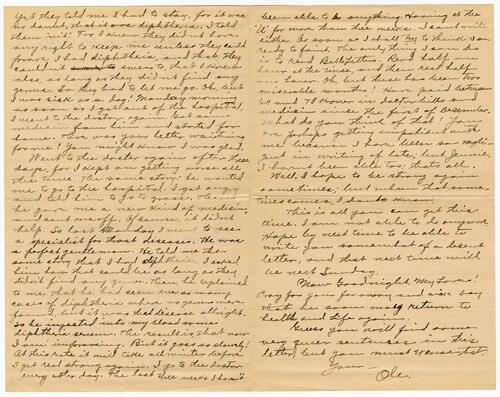 Yet they told me I had to stay, for it was
no doubt, that it was diphtheria. I told
them "nit". For I knew they did not have
any right to keep me unless they could
prove I had diphtheria, and that they
could not be sure, that I
as long as they did not find any
germs. So they had to let me go. Oh, but
I was sick as a dog! Monday morning
as soon as I got out of the hospital,
I went to the doctor again. Got some
medicine from him and started for
home. There was your letter waiting
for me! You might know I was glad.
Went to the doctor again after three
days, for I kept on getting worse all
the time. The same story; he wanted
me to go to the hospital. I got angry
and told him to go to grass. Then
he gave me a new kind of medicine,
and sent me off. Of course, it didn't
help. So last Monday I went to see
a specialist for throat diseases. He was
a perfect gentleman. He told me the
same story that I had diphtheria. I asked
him how that could be as long as they
didn't find any germs. Then he explained
to me that he had seen various many
cases of diphtheria where no germs were
found, but it was that disease allright.
So he injected into my blood some
diphtheria serum. The result is that now
I am improving. But it goes so slowly!
At this rate it will take all winter before
I get real strong again. I go to the doctor
every other day. The last three weeks I haven't
been able to do anything. Having
for more than three weeks. I can't write
either. As soon as I shall try to think I am
ready to faint. The only thing I can do
is to read Bulletins. Read half an
hour at the time, and then rest half
an hour. Oh, but these has been two
miserable months! Have paid between
60 and 70 Kroner in doctor bills and
medicine since the first of December.
What do you think of that! You
are perhaps getting impatient with
me because I have been so negli-
gent in writing of late, but Jennie,
I haven't been able to, that's all.
Well, I hope to be strong again
sometimes; but when that some-
times comes, I don't know.
This is all you can get this
time. I am not able to do anymore.
Hope by next time to be able to
write you somewhat of a decent
letter, and that next time will
be next Sunday.
Now Goodnight, My Love!
Pray for your far away and sick boy
that he soon may return to
health and life again.
Guess you will find some
very queer sentences in this
letter, but you must excuse that.
Yours —
Ole.